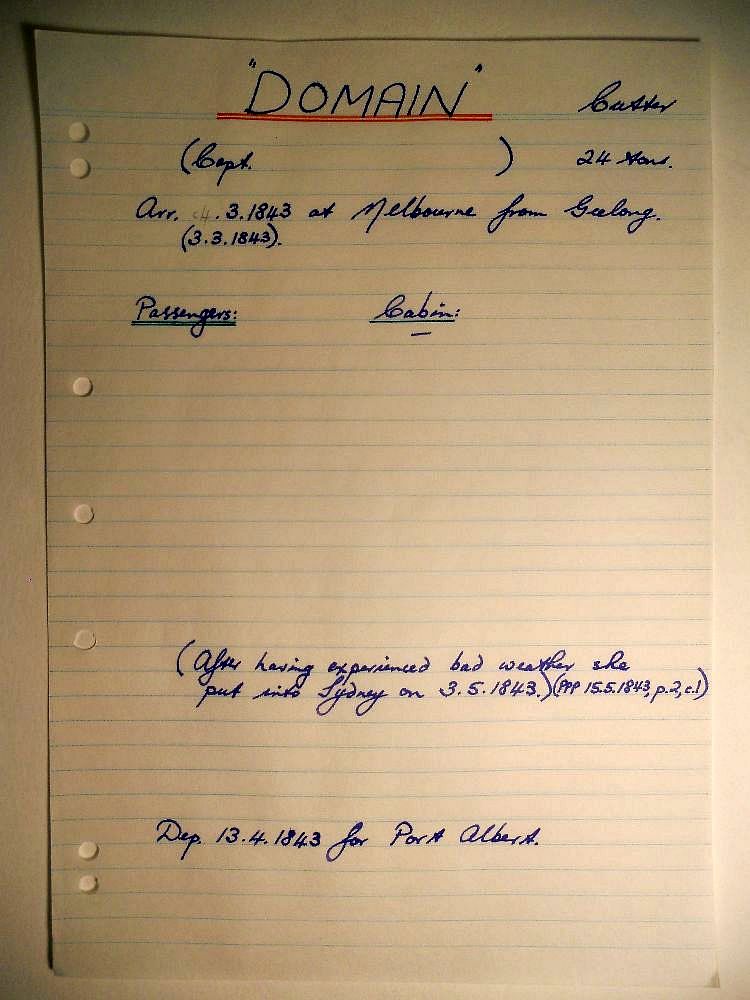 "DOMAIN" Cutter
(Capt. ) 24 tons.
Arr. 4.3.1843 at Melbourne from Geelong.
(3.3.1843).
Passengers: Cabin:
(After having experienced bad weather she
put into Sydney on 3.5.1843.) (PPP 15.5.1843, p.2, c.1)
Dep. 13.4.1843 for Port Albert.